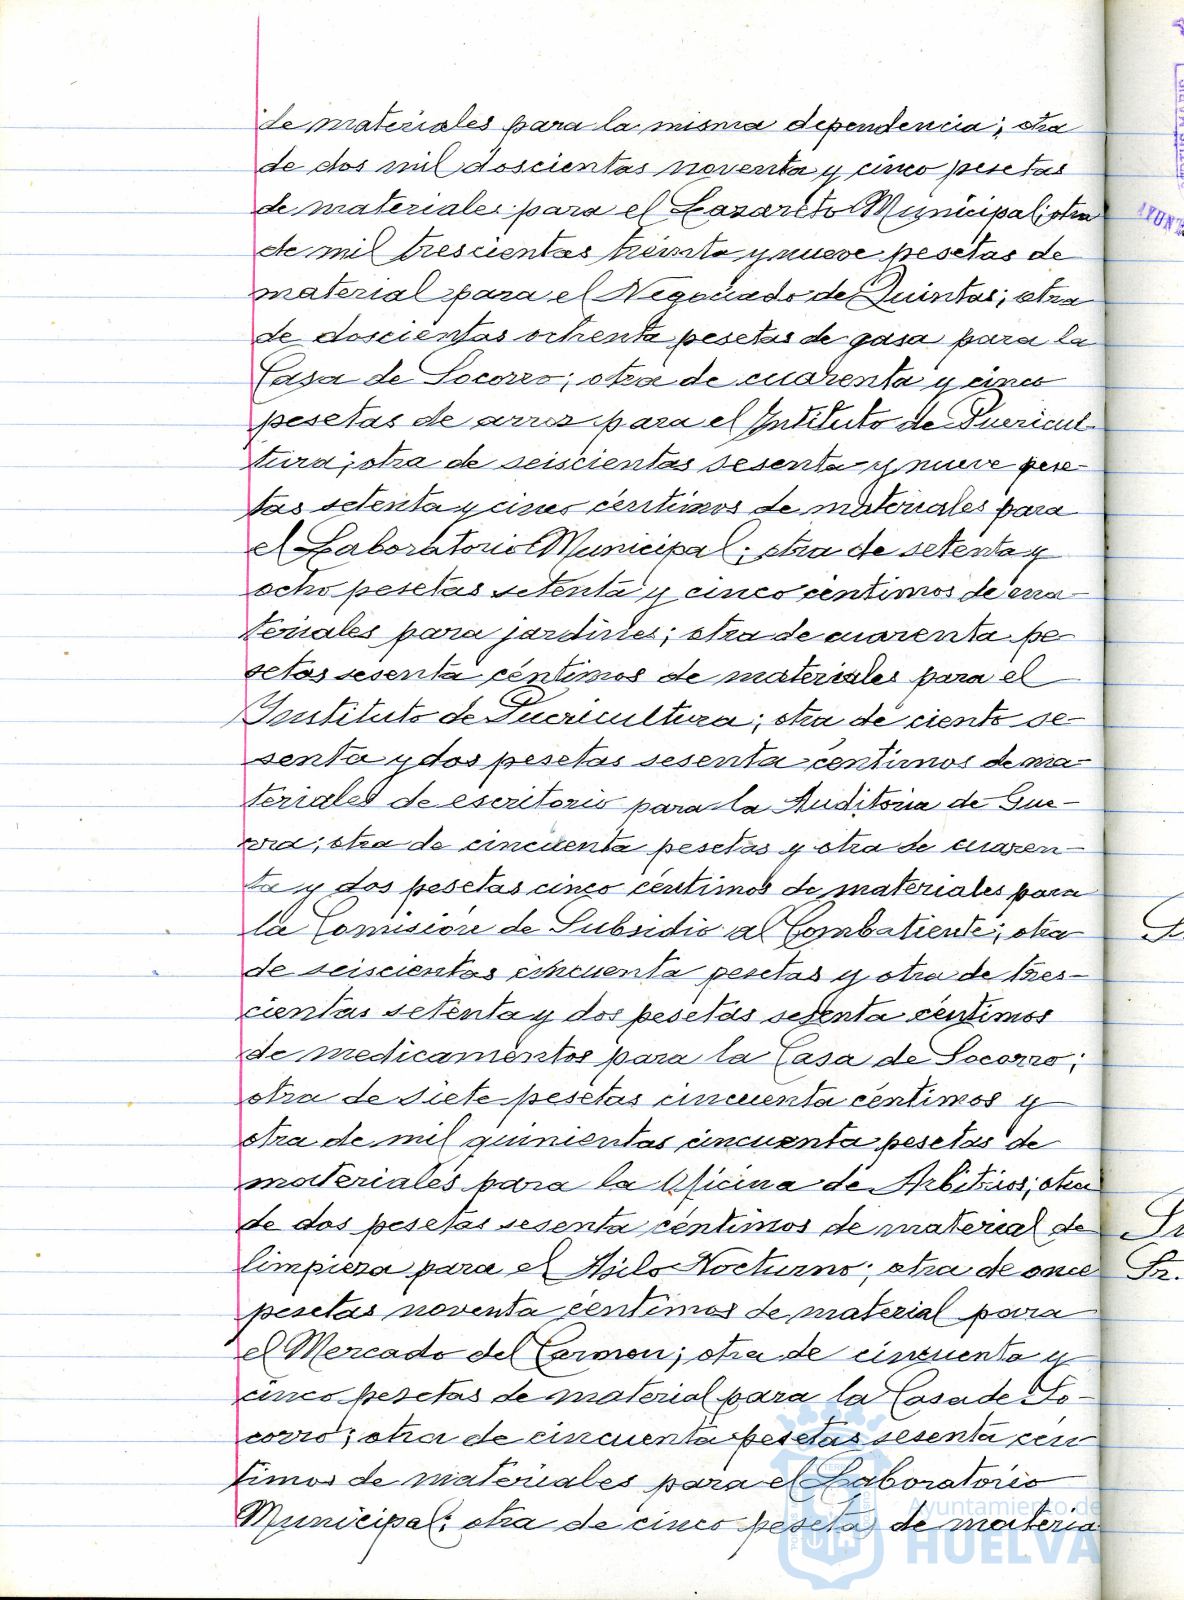 de materiales para la misma dependencia; otra
de dos mil doscientas noventa y cinco pesetas
de materiales para el Lazareto Municipal; otra
de mil trescientas treinta y nueve pesetas de
material para el Negociado de Quintas; otra
de doscientas ochenta pesetas de gasa para la
Casa de Socorro; otra de cuarenta y cinco
pesetas de arroz para el Intituto de Puericul-
tura; otra de seiscientas sesenta y nueve pese-
tas setenta y cinco céntimos de materiales para
el Laboratorio Municipal; otra de setenta y
ocho pesetas setenta y cinco céntimos de ma-
teriales para jardines; otra de cuarenta pe-
setas sesenta céntimos de materiales para el
Instituto de Puericultura; otra de ciento se-
senta y dos pesetas sesenta céntimos de ma-
teriales de escritorio para la Auditoria de Gue-
rra; otra de cincuenta pesetas y otra de cuaren-
ta y dos pesetas cinco céntimos de materiales para
la Comisión de Subsidio al Combatiente; otra
de seiscientas cincuenta pesetas y otra de tres-
cientas setenta y dos pesetas sesenta céntimos
de medicamentos para la Casa de Socorro;
otra de siete pesetas cincuenta céntimos y
otra de mil quinientas cincuenta pesetas de
materiales para la Oficina de Arbitrios; otra
de dos pesetas sesenta céntimos de material de
limpieza para el Asilo Nocturno; otra de once
pesetas noventa céntimos de material para
el Mercado del Carmen; otra de cincuenta y
cinco pesetas de material para la Casa de So-
corro; otra de cincuenta pesetas sesenta cén
timos de materiales para el Laboratorio
Municipal; otra de cinco pesetas de materia
Ayuntamiento de
HUELVA